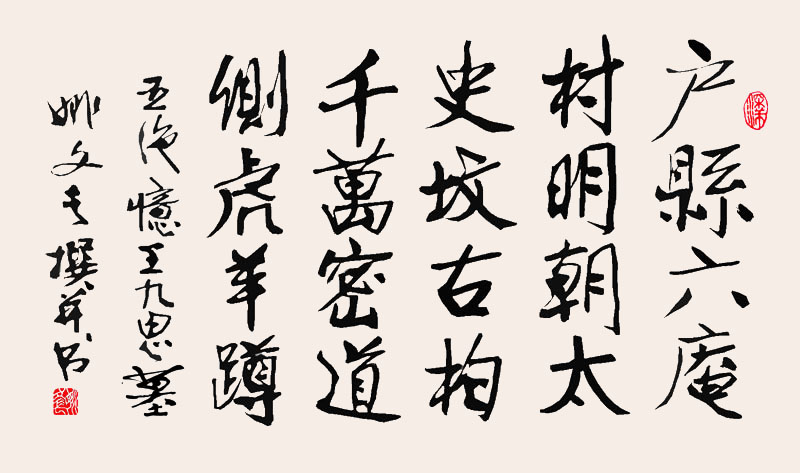 户縣六庵
村明朝太
史坟古柏
千萬密道
側虎羊蹲
五絶憶王九思墓
姚文长撰并书